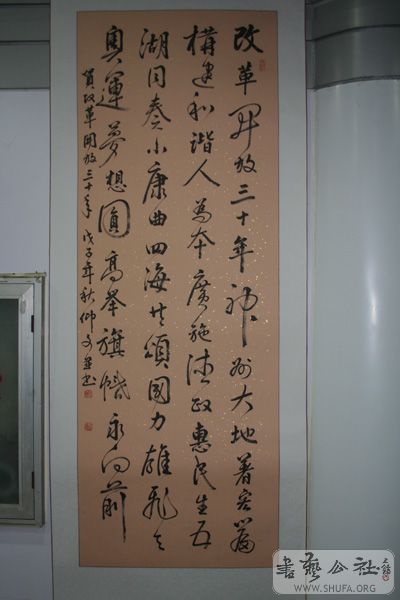 改革開放三十年神州大地著宏篇
構建和諧人為本廣施德政惠民生五
湖同奏小康曲四海共頌國力雄飛天
奧運夢想圓高舉旗幟永向前
賀改革開放三十年 戊子年秋仲文并書
書藝公社
WWW.SHUFA.ORG